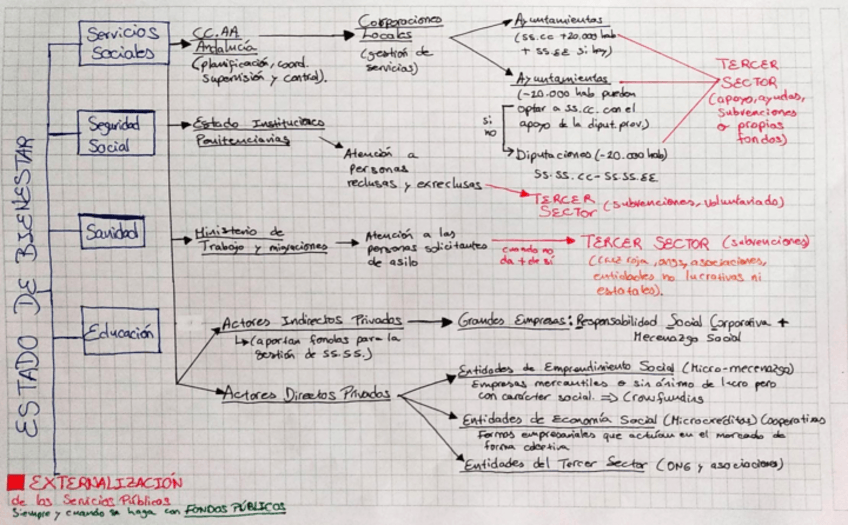 ESTADO DE BIENESTAR
Servicios
Sociales
Seguridad
Social
Sanidad
Educación
CC.AA
Andalucía
(planificación, coord.
supervisión y control).
Corporaciones
Locales
(gestión de
servicios)
Ayuntamientos
(SS.CC +20.000 hab
+ SS.EE si hay)
Ayuntamientos
(-20.000 hab pueden
optar a SS.CC. con el
apoyo de la diput.prov.)
si
no
Diputaciones (-20.000 hab)
SS.SS.CC - SS.SS.EE
TERCER
SECTOR
(apoyo, ayudas,
subvenciones
o propias
fondos)
Estado Instituciones
Penitenciarias
Atención a
personas
reclusas y exreclusas
TERCER
SECTOR (subvenciones, voluntariado)
Ministerio de
Trabajo y migraciones
Atención a las
personas solicitantes
de asilo
cuando no
da + de sí
TERCER SECTOR (subvenciones)
(cruz roja, ongs, asociaciones,
entidades no lucrativas ni
estatales).
Actores Indirectos Privados
(aportan fondos para la
gestión de SS.SS.)
Grandes Empresas: Responsabilidad Social Corporativa +
Mecenazgo Social
Actores Directos Privados
Entidades de Emprendimiento Social (Micro-mecenazgo)
Empresas mercantiles o sin ánimo de lucro pero
con carácter social. ⇒ Crowfunding
Entidades de Economía Social (Microcréditos) Cooperativas
Formas empresariales que actúan en el mercado de
forma
Entidades del Tercer Sector (ONG y asociaciones)
EXTERNALIZACIÓN
de los Servicios Públicos
Siempre y cuando se haga con FONDOS PÚBLICOS